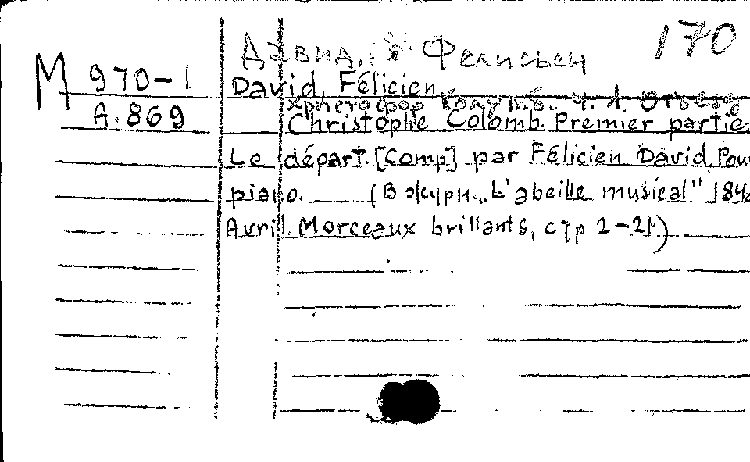 Давид, Фелисьен 170
M 970-1
David, Félicien.
Христофор Колумб. Ч. 1. Отъезд
А.869
Christophe Colomb. Premier partie.
Le départ. [Comp] par Félicien David. Pour
piano. (В журн. „L'abeille musical" 184
Avril. Morceaux brillants, стр 1-21.)